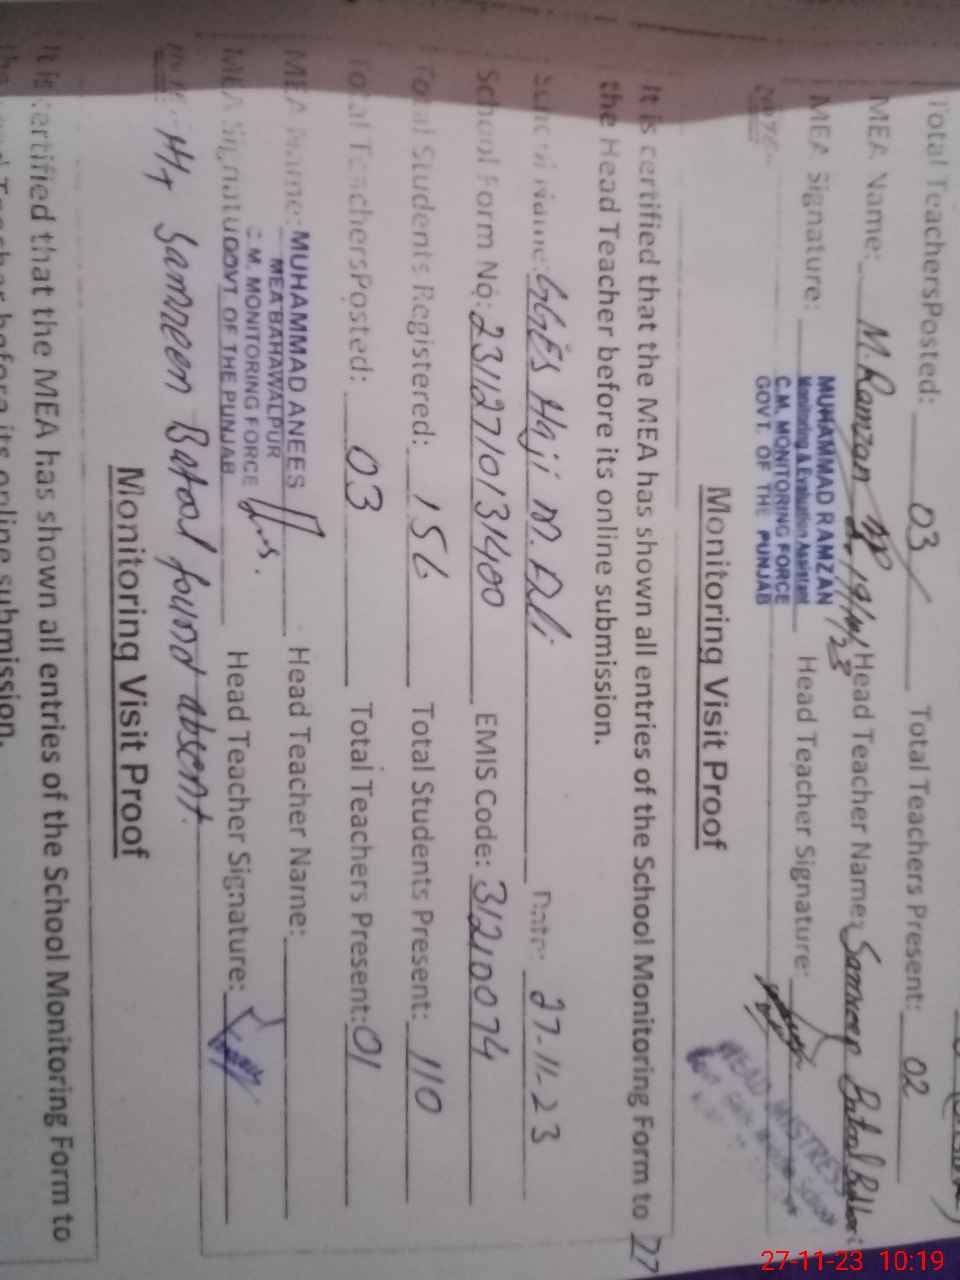 Total TeachersPosted: 03 Total Teachers Present: 02
MEA Name: M. Ramzan 19/10/23 Head Teacher Name: Samreen Batool
MEA Signature: Head Teacher Signature:
MUHAMMAD RAMZAN
Monitoring & Evaluation Assistant
C.M. MONITORING FORCE
GOVT. OF THE PUNJAB
HEAD MISTRESS
Note:-
Monitoring Visit Proof
27
It is certified that the MEA has shown all entries of the School Monitoring Form to
the Head Teacher before its online submission.
School Name: GGES Haji M. Ali Date: 27-11-23
School Form No: 23112710131400 EMIS Code: 31210074
Total Students Registered: 156 Total Students Present: 110
Total TeachersPosted: 03 Total Teachers Present: 01
MEA Name: Head Teacher Name:
MUHAMMAD ANEES
MEA BAHAWALPUR
C.M. MONITORING FORCE
GOVT. OF THE PUNJAB
MEA Signatu Head Teacher Signature:
Note: HT Samreen Batool found absent.
Monitoring Visit Proof
It is certified that the MEA has shown all entries of the School Monitoring Form to
Teacher before its online submission.
27-11-23 10:19